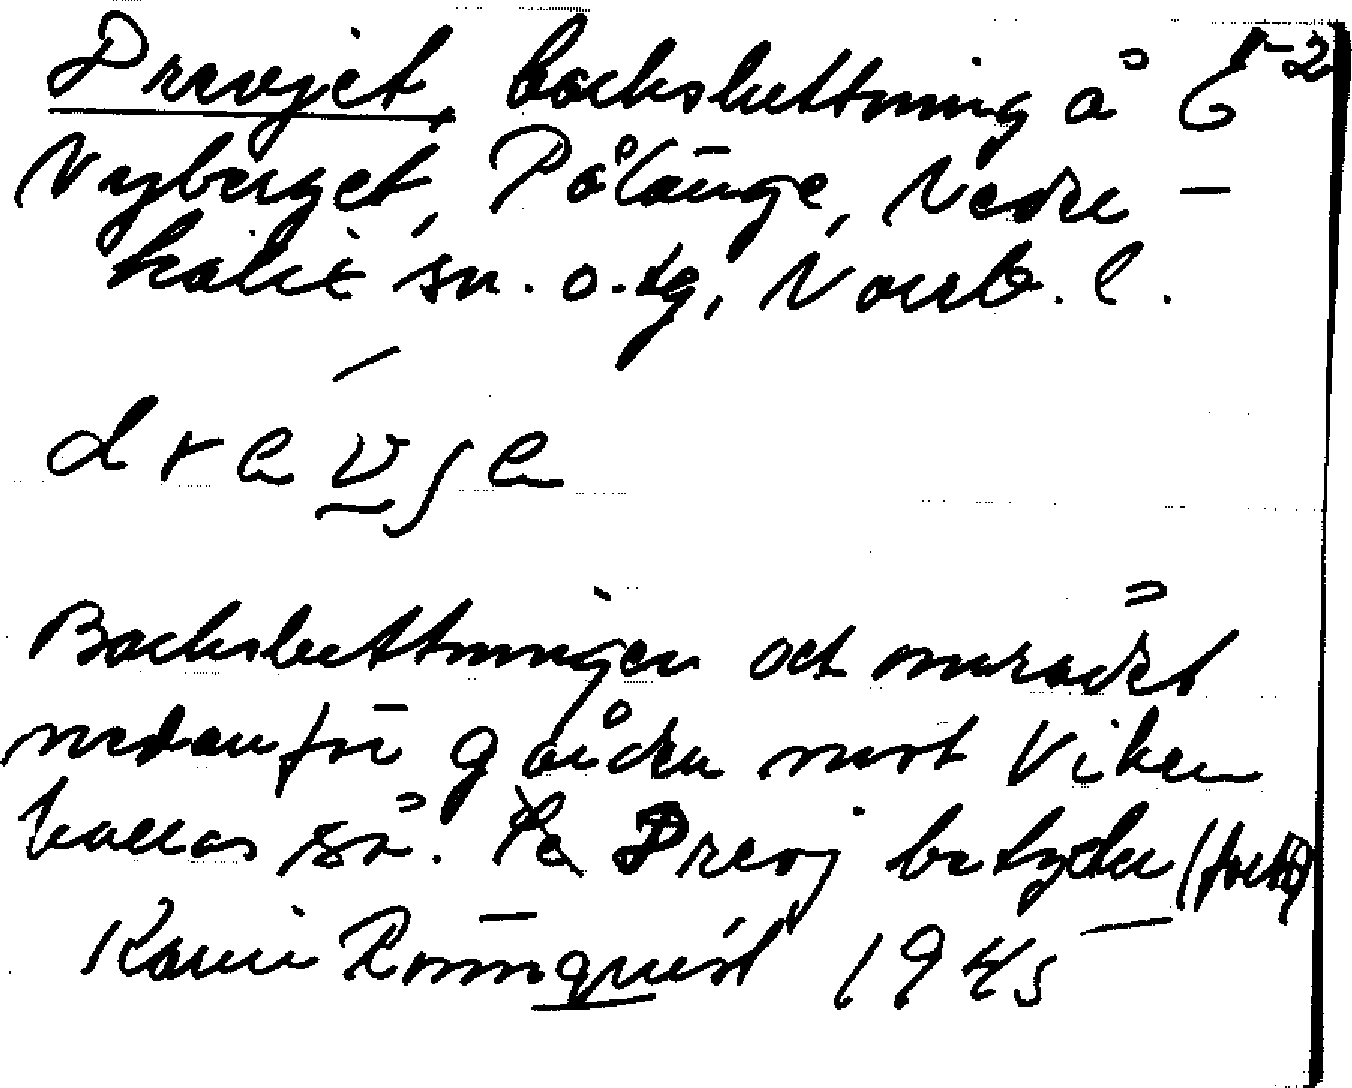 Drevjet, backsluttning å 6 1-2
Nyberget, Pålänge, Neder-
kalix sn. o. tg, Norrb. l.
drevje
Backsluttningen och området
nedanför gården mot Viken
kallas så. Drevj betyder (forts)
Karin Rönnquist 1945